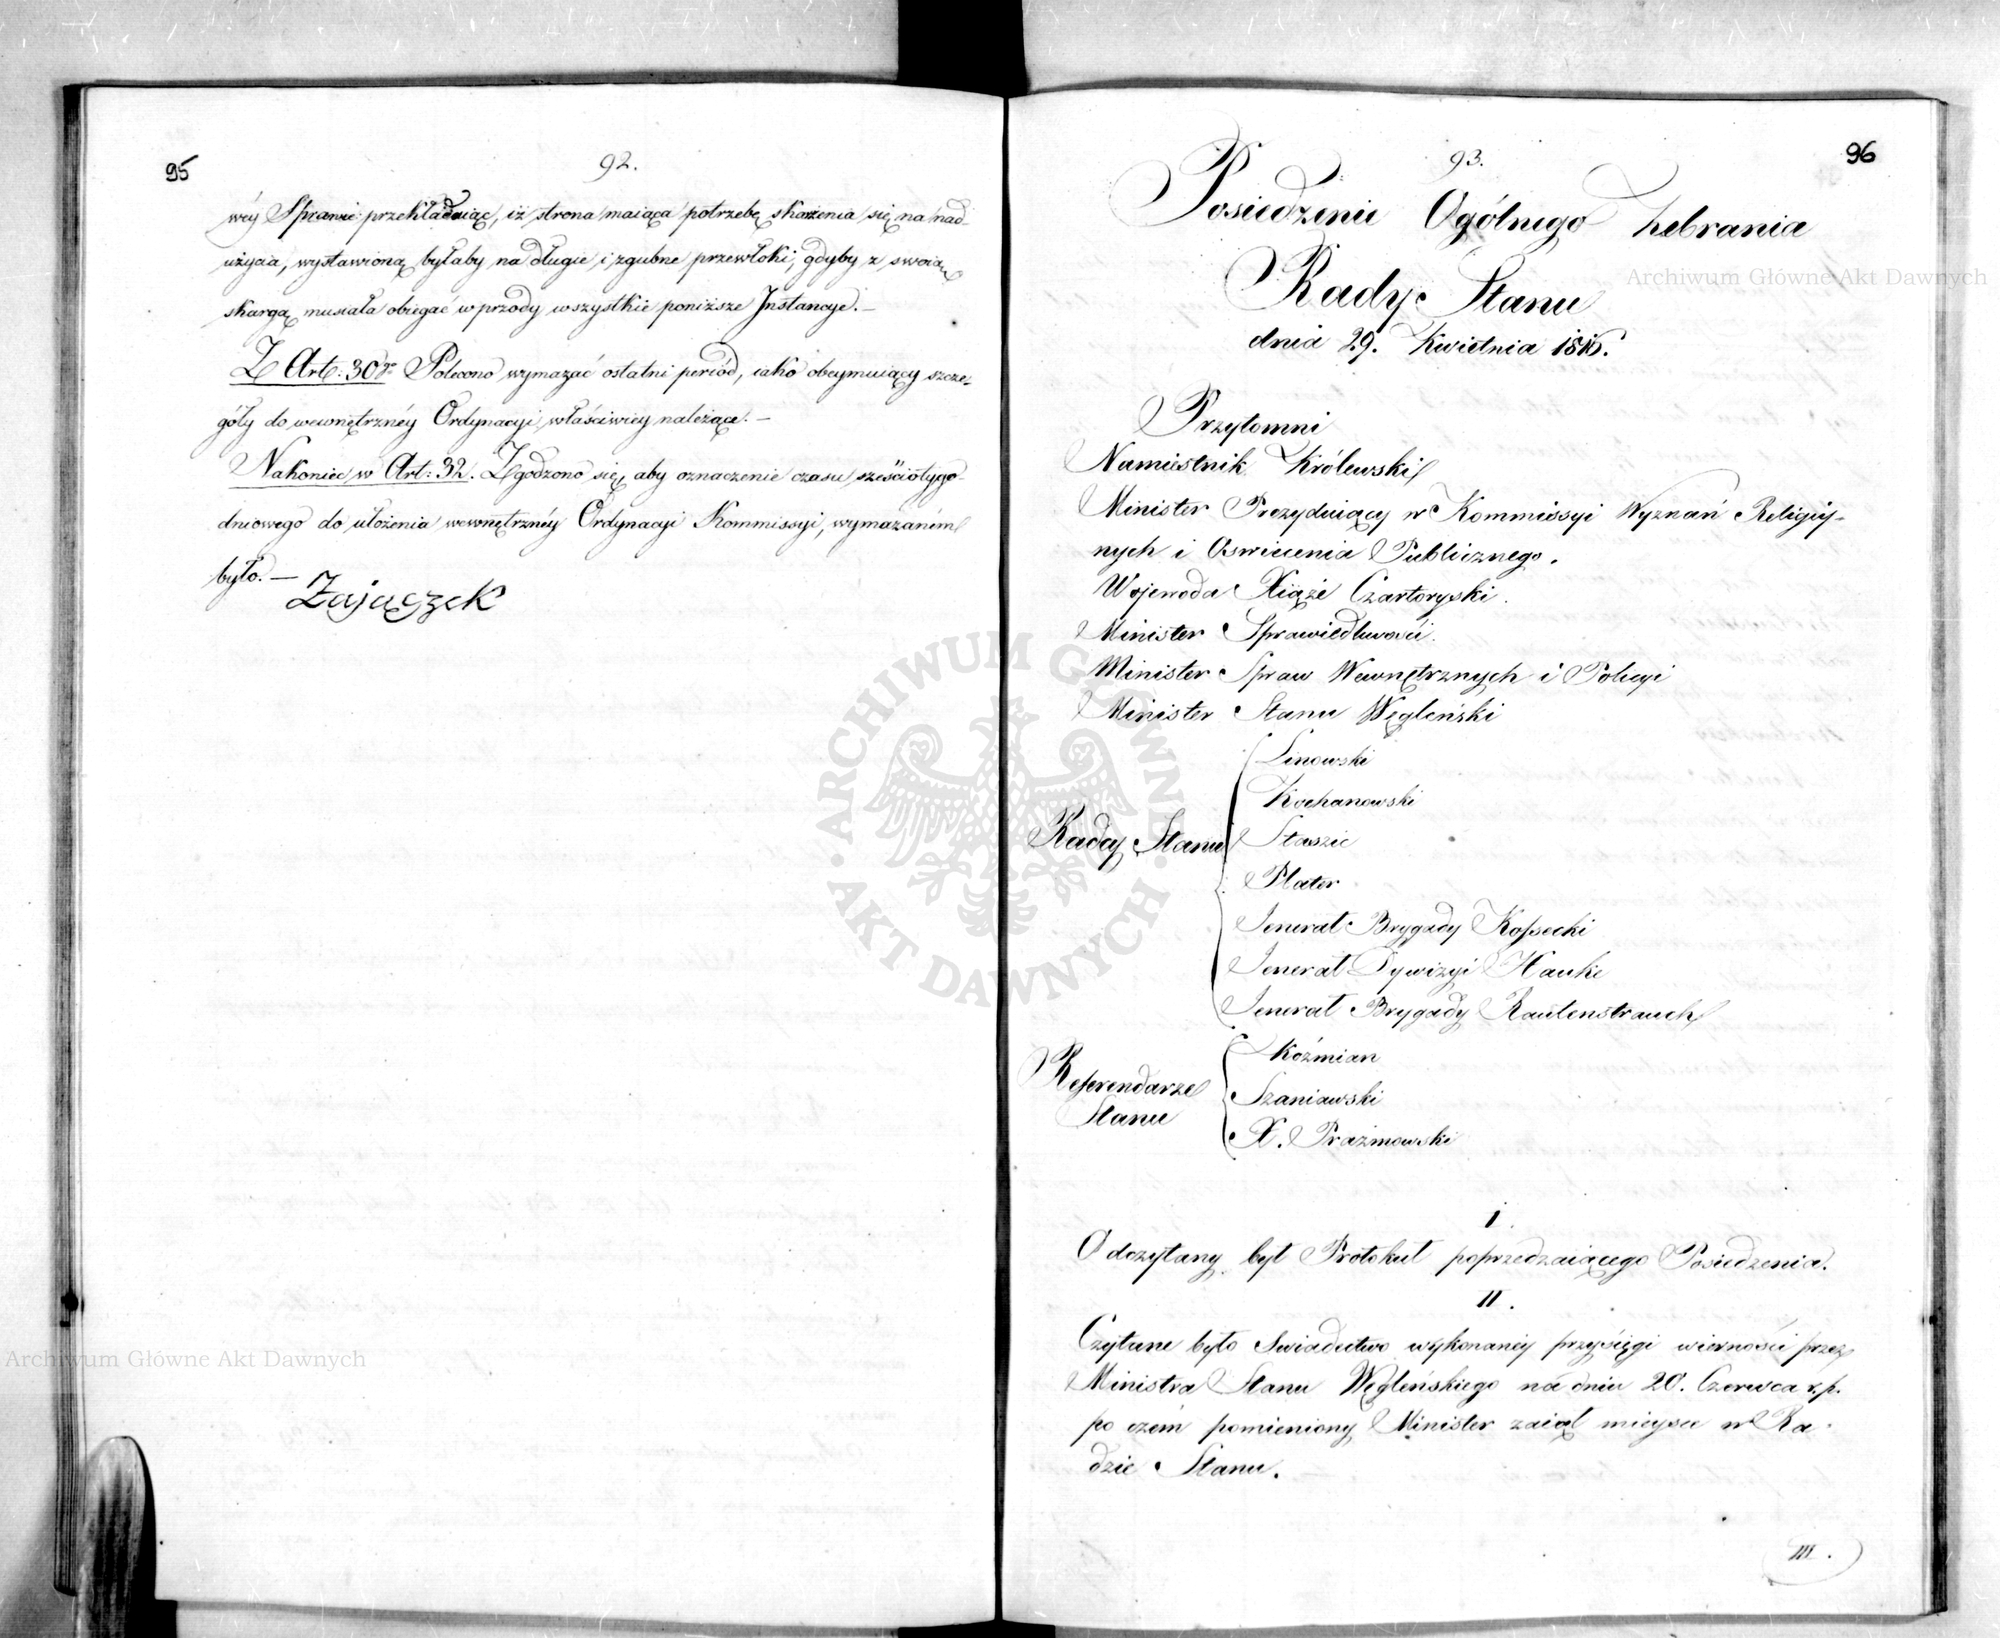 95
92.
wéy Sprawie przekładaiąc, iż strona maiąca potrzebę skarżenia się na nad-
użycia, wystawioną byłaby na długie i zgubne przewłoki, gdyby z swoią
skargą musiała obiegać wprzódy wszystkie poniższe Instancye. –
Z Art: 30go Polecono wymazać ostatni period, iako obeymuiący szcze-
góły do wewnętrznéy Ordynacyi właściwiey należące. –
Nakoniec w Art: 32. Zgodzono się, aby oznaczenie czasu sześciotygo-
dniowego do ułożenia wewnętrznéy Ordynacyi Kommissyi, wymazaném
było. –
Zajączek
96
93.
Posiedzenie Ogólnego Zebrania
Rady Stanu
dnia 29. Kwietnia 1816.
Przytomni
Namiestnik Królewski
Minister Prezyduiący w Kommissyi Wyznań Religiy-
nych i Oswiecenia Publicznego.
Wojewoda Xiąże Czartoryski.
Minister Sprawiedliwości.
Minister Spraw Wewnętrznych i Policyi
Minister Stanu Węgleński
Radcy Stanu
Linowski
Kochanowski
Staszic
Plater
Jenerał Brygady Kossecki
Jenerał Dywizyi Hauke
Jenerał Brygady Rautenstrauch
Referendarze
Stanu
Koźmian
Szaniawski
X. Prażmowski
I
Odczytany był Protokuł poprzedzaiącego Posiedzenia.
II.
Czytane było Swiadectwo wykonanéy przysięgi wierności przez
Ministra Stanu Węgleńskiego na dniu 20. Czerwca r.p.
po czém pomieniony Minister zaiął mieysce w Ra-
dzie Stanu.
III.
Archiwum Główne Akt Dawnych
ARCHIWUM GŁÓWNE AKT DAWNYCH
Archiwum Główne Akt Dawnych